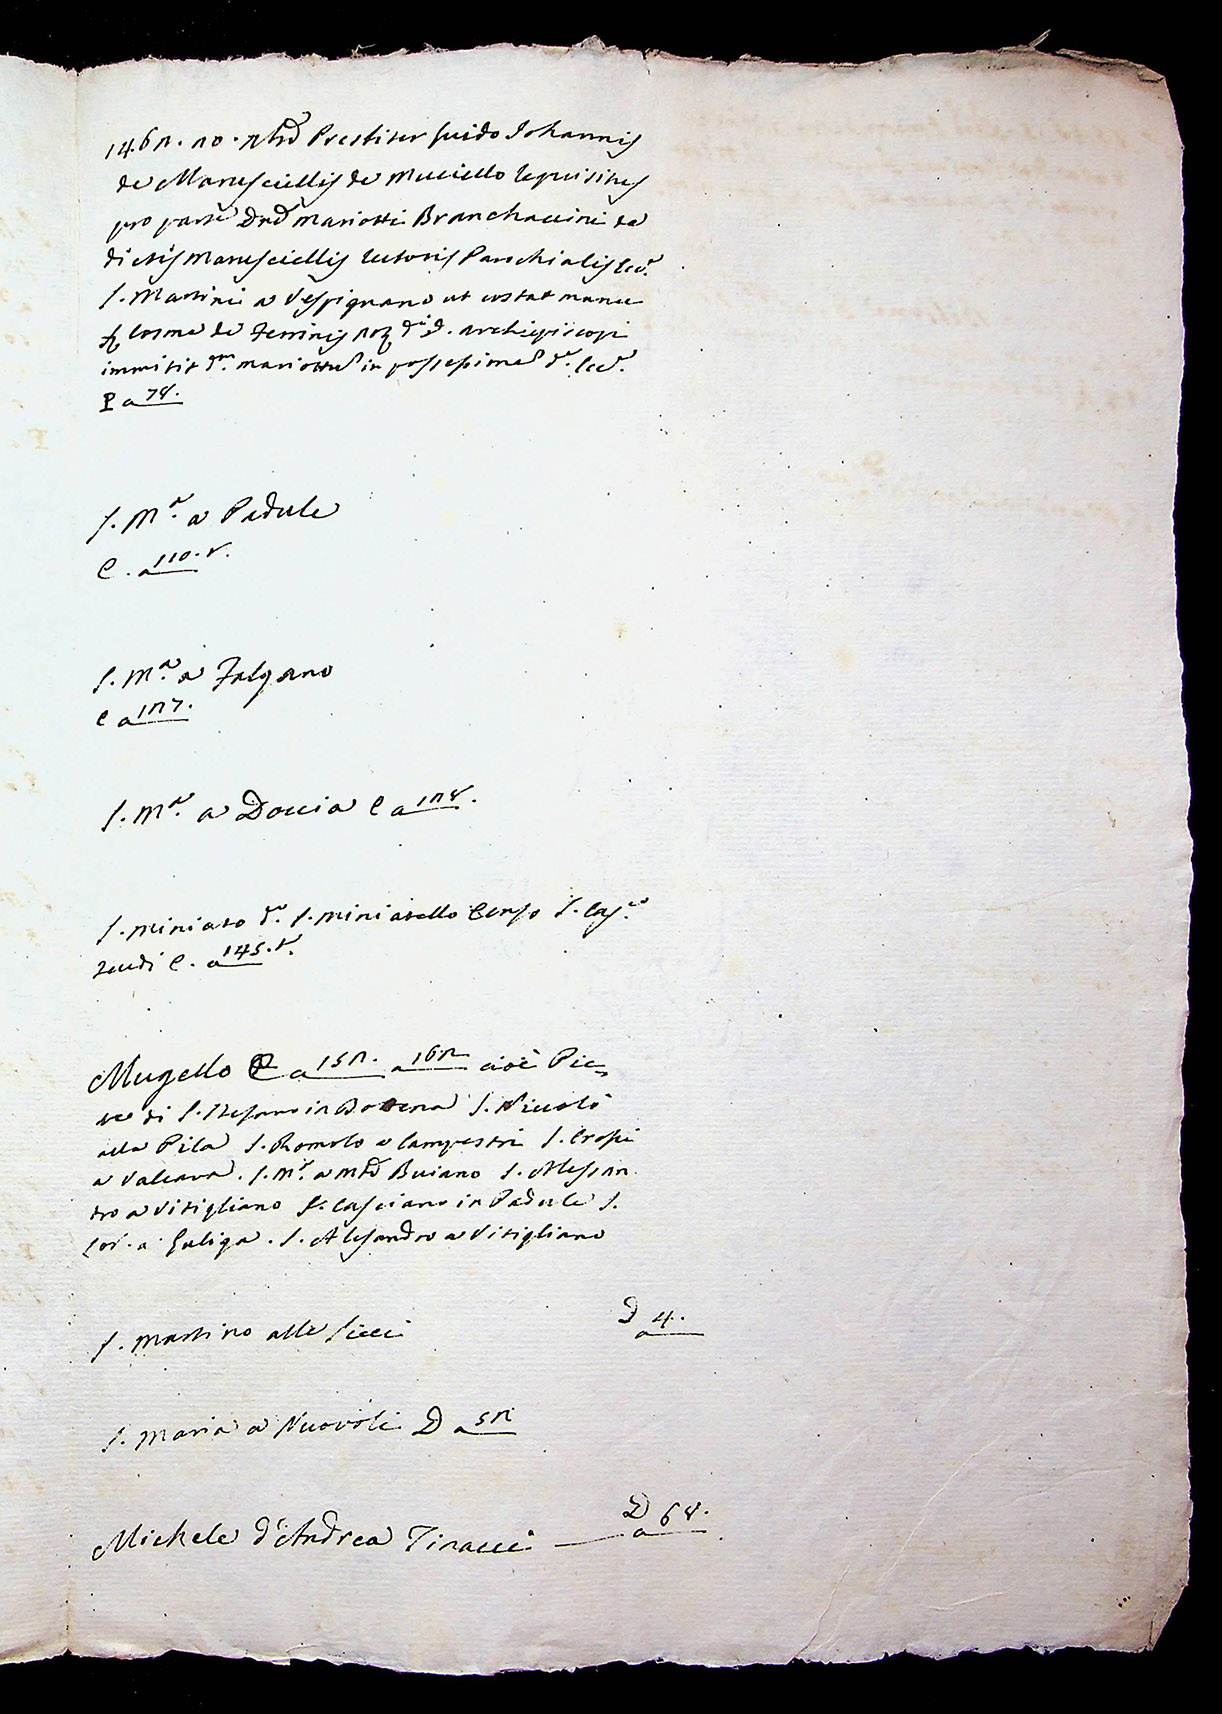 1462. 20. Presbiter Guido Johannis
de Maruscellis de Mucello requisitus
pro parte Dnd Mariotti Branchaccini de
dictis Maruscellis rectoris Parochialis Ecc.
S. Martini a Vespignano ut costat manu
Cosme de Ferrinis archiepiscopi
immisit d. mariottu in possessione d. Ecc.
P a 78.
S. Ma. a Padule
C. a 110. t.
S. Ma. a Falgano
C a 127.
S. Ma. a Doccia C a 128.
S. Miniato d. S. Miniatello Corso S. Cas.
C. a 145. t.
Mugello C a 152. a 162 cioè Pie=
ve di S. Stefano in Bottena S. Niccolò
alla Pila S. Romolo a Campestri S. Cresci
a Valcava. S. Ma. a Buiano S. Alessan
dro a Vitigliano S. Casciano in Padule S.
a Galiga. S. Alesandro a Vitigliano
S. Martino alle Sieci D a 4.
S. Maria a Nuovoli D a 52
Michele d'Andrea Tinacci D a 68.